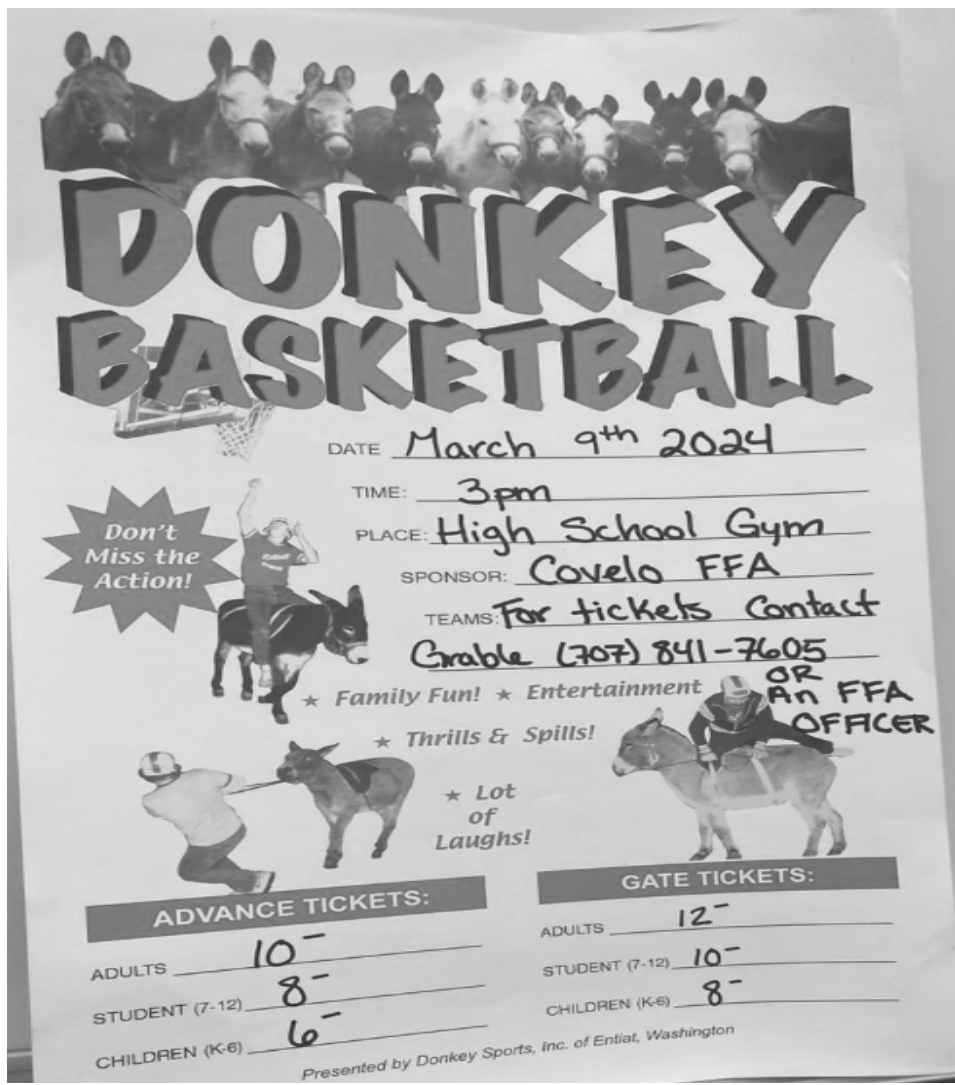 DONKEY
BASKETBALL
DATE March 9th 2024
TIME: 3pm
PLACE: High School Gym
SPONSOR: Covelo FFA
TEAMS: For tickets Contact
Grable (707) 841-7605
OR
An FFA
OFFICER
Don't
Miss the
Action!
★ Family Fun! ★ Entertainment
★ Thrills & Spills!
★ Lot
of
Laughs!
ADVANCE TICKETS:
ADULTS 10-
STUDENT (7-12) 8-
CHILDREN (K-6) 6-
GATE TICKETS:
ADULTS 12-
STUDENT (7-12) 10-
CHILDREN (K-6) 8-
Presented by Donkey Sports, Inc. of Entiat, Washington